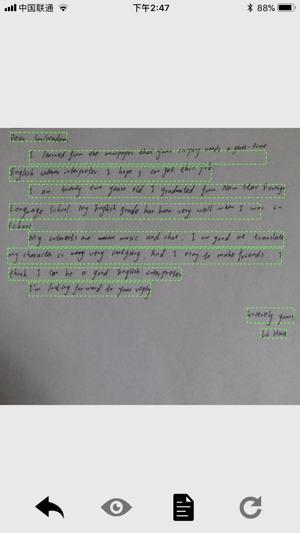 中国联通
下午2:47
88%
Dear Sir/Madam
I learned from the newspaper that your company needs a part-time
English interpreter I hope I can get this job
I am twenty two years old I graduated from New Star
Language School. My English grade has been very well when I was in
school
My interests are music and chat. I am good at translate
My character is very outgoing And I easy to make friends. I
think I can be a good English interpreter
I'm looking forward to your reply
Sincerely yours
Li Hua